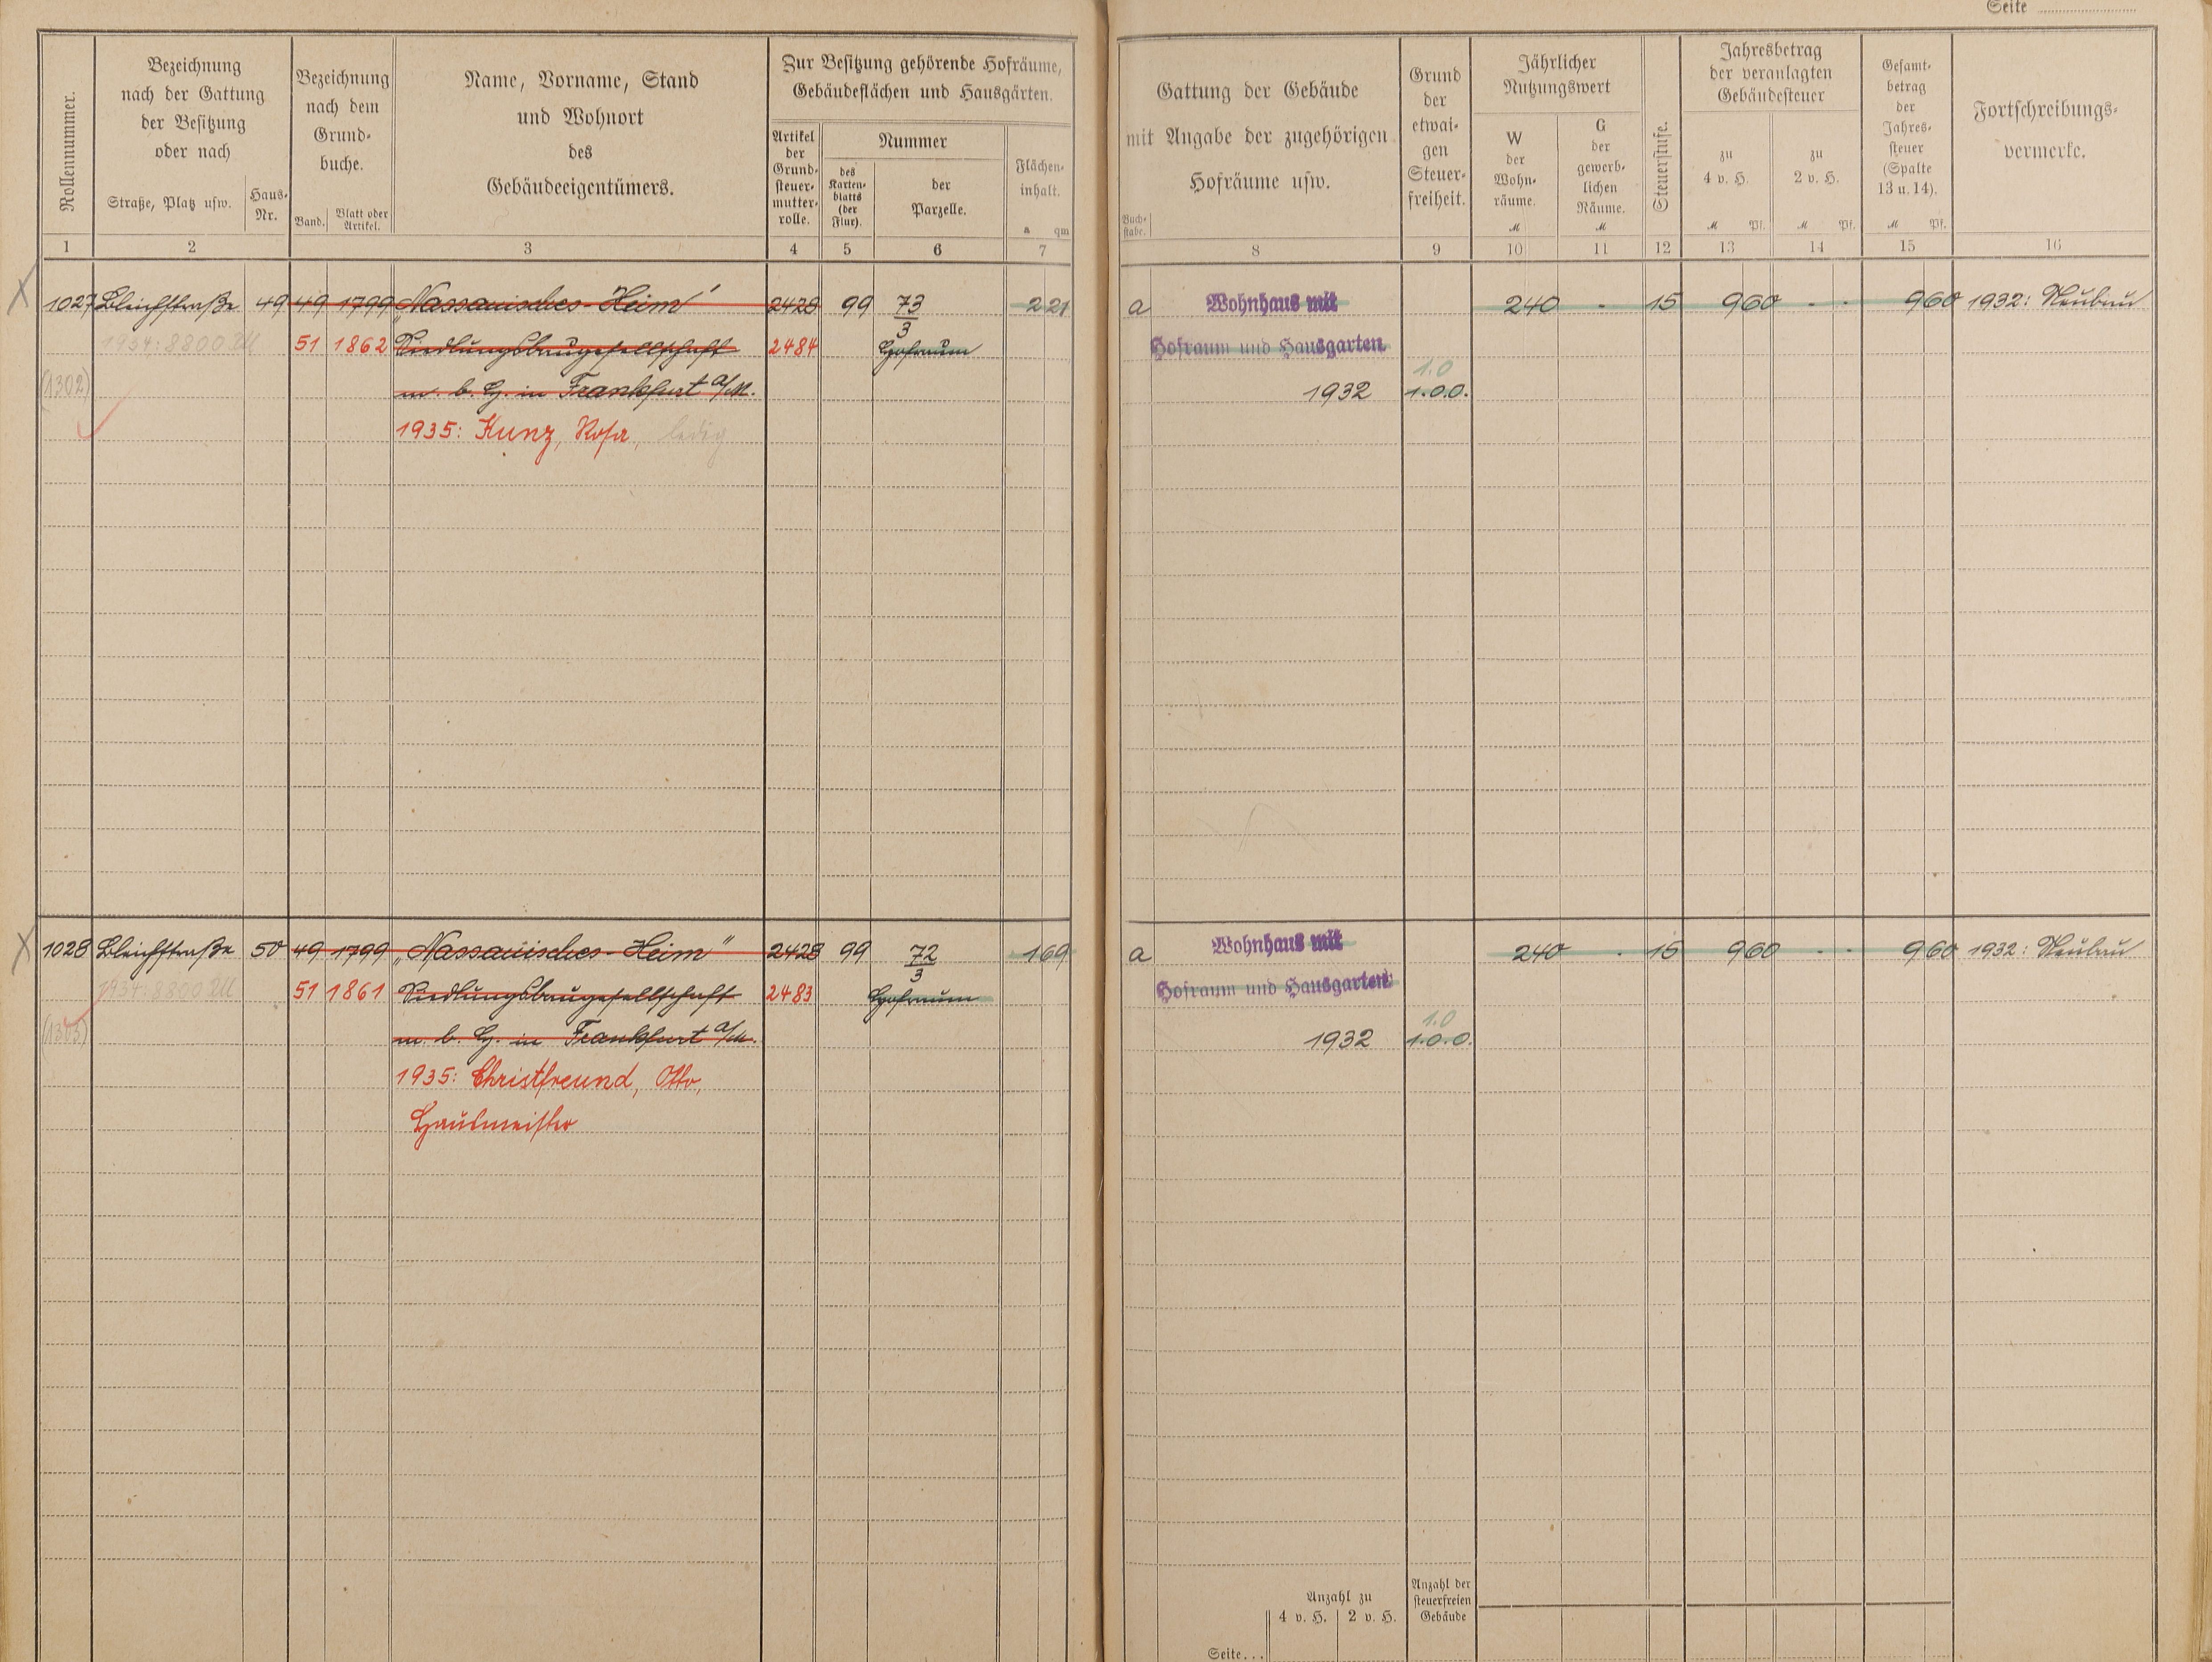 Seite
Rollennummer.
Bezeichnung
nach der Gattung
der Besitzung
oder nach
Straße, Platz usw.
Haus-
Nr.
Bezeichnung
nach dem
Grund-
buche.
Band.
Blatt oder
Artikel.
Name, Vorname, Stand
und Wohnort
des
Gebäudeeigentümers.
Zur Besitzung gehörende Hofräume,
Gebäudeflächen und Hausgärten.
Artikel
der
Grund-
steuer-
mutter-
rolle.
Nummer
des
Karten-
blatts
(der
Flur).
der
Parzelle.
Flächen-
inhalt.
a qm
Gattung der Gebäude
mit Angabe der zugehörigen
Hofräume usw.
Buch-
stabe.
Grund
der
etwai-
gen
Steuer-
freiheit.
Jährlicher
Nutzungswert
W
der
Wohn-
räume.
M
G
der
gewerb-
lichen
Räume.
M
Steuerstufe.
Jahresbetrag
der veranlagten
Gebäudesteuer
zu
4 v. H.
M Pf.
zu
2 v. H.
M Pf.
Gesamt-
betrag
der
Jahres-
steuer
(Spalte
13 u. 14).
M Pf.
Fortschreibungs-
vermerke.
1 2 3 4 5 6 7 8 9 10 11 12 13 14 15 16
1027 Bleichstraße 49 49 1799 "Nassauisches-Heim" 2428 99 73/3 221 a Wohnhaus mit 240 - 15 960 - - 960 1932: Neubau
1934: 8800 RM 51 1862 Siedlungsbaugesellschaft 2484 Hofraum Hofraum und Hausgarten
(1302) m. b. H. in Frankfurt a/M. 1932 1.0 1.0.0.
1935: Kunz, Rosa, ledig
1028 Bleichstraße 50 49 1799 "Nassauisches-Heim" 2428 99 72/3 169 a Wohnhaus mit 240 - 15 960 - - 960 1932: Neubau
1934: 8800 RM 51 1861 Siedlungsbaugesellschaft 2483 Hofraum Hofraum und Hausgarten
(1303) m. b. H. in Frankfurt a/M. 1932 1.0 1.0.0.
1935: Christfreund, Otto,
Hausmeister
Anzahl zu
4 v. H. 2 v. H.
Anzahl der
steuerfreien
Gebäude
Seite...